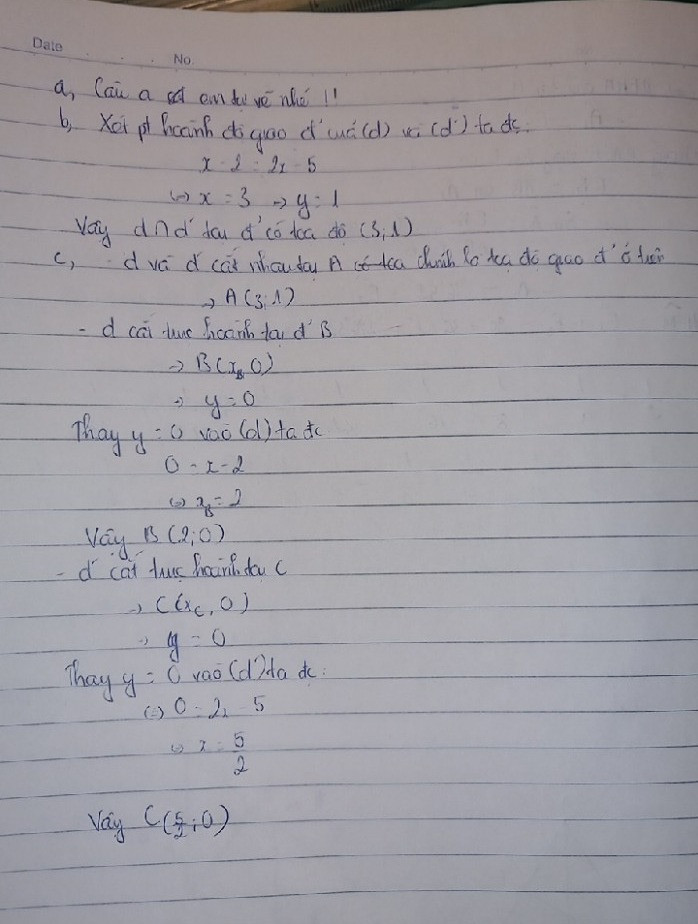 Date No.
a, Câu a em tự vẽ nhé !!
b, Xét pt hoành độ giao đ' của (d) và (d') ta đc.
x - 2 = 2x - 5
<=> x = 3 -> y = 1
Vậy d ∩ d' tại đ' có tọa độ (3; 1)
c, - d và d' cắt nhau tại A có tọa chính là tọa độ giao đ' ở trên
-> A (3; 1)
- d cắt trục hoành tại đ' B
-> B (x_B, 0)
-> y = 0
Thay y = 0 vào (d) ta đc
0 = x - 2
<=> x_B = 2
Vậy B (2; 0)
- d' cắt trục hoành tại C
-> C (x_C, 0)
-> y = 0
Thay y = 0 vào (d') ta đc:
<=> 0 = 2x - 5
<=> x = 5/2
Vậy C (5/2; 0)